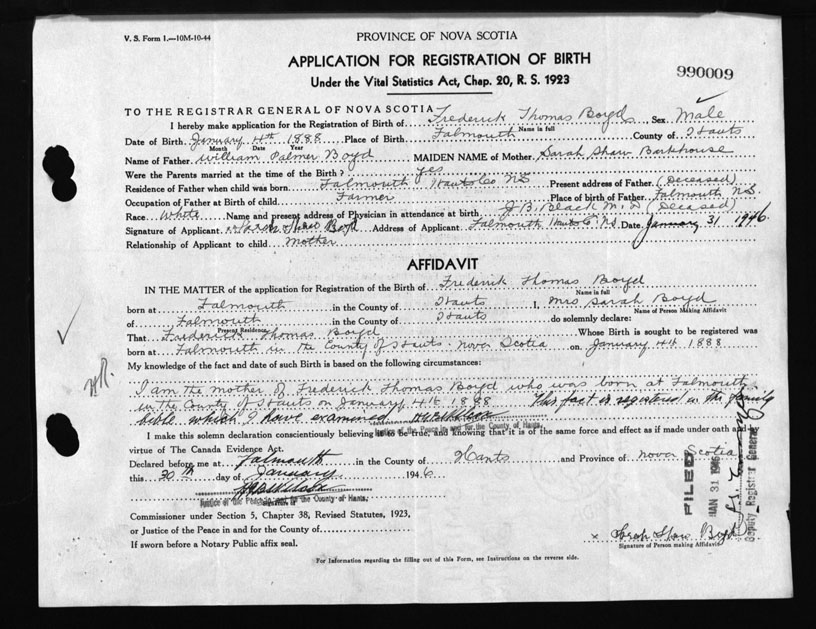 V. S. Form 1.—10M-10-44
PROVINCE OF NOVA SCOTIA
APPLICATION FOR REGISTRATION OF BIRTH
Under the Vital Statistics Act, Chap. 20, R. S. 1923
990009
TO THE REGISTRAR GENERAL OF NOVA SCOTIA
I hereby make application for the Registration of Birth of Frederick Thomas Boyd Sex Male
Name in full
Date of Birth January 4th 1888 Place of Birth Falmouth County of Hants
Month Date Year
Name of Father William Palmer Boyd MAIDEN NAME of Mother Sarah Shaw Barkhouse
Were the Parents married at the time of the Birth? yes
Residence of Father when child was born Falmouth Hants Co NS Present address of Father (Deceased)
Occupation of Father at Birth of child Farmer Place of birth of Father Falmouth N.S.
Race White Name and present address of Physician in attendance at birth J B. Black M.D (Deceased)
Signature of Applicant Sarah Shaw Boyd Address of Applicant Falmouth Hants Co. NS Date January 31 1946
Relationship of Applicant to child mother
AFFIDAVIT
IN THE MATTER of the application for Registration of the Birth of Frederick Thomas Boyd
Name in full
born at Falmouth in the County of Hants I, Mrs Sarah Boyd
Name of Person Making Affidavit
of Falmouth in the County of Hants do solemnly declare:
Present Residence
That Frederick Thomas Boyd Whose Birth is sought to be registered was
born at Falmouth in the County of Hants Nova Scotia on January 4th 1888
My knowledge of the fact and date of such Birth is based on the following circumstances:
I am the mother of Frederick Thomas Boyd who was born at Falmouth
in the County of Hants on January 4th 1888 This fact is registered in the family
bible which I have examined
Justice of the Peace in and for the County of Hants.
I make this solemn declaration conscientiously believing it to be true, and knowing that it is of the same force and effect as if made under oath and by
virtue of The Canada Evidence Act.
Declared before me at Falmouth in the County of Hants and Province of Nova Scotia
this 30th day of January 1946
Justice of the Peace in and for the County of Hants.
Commissioner under Section 5, Chapter 38, Revised Statutes, 1923,
or Justice of the Peace in and for the County of
If sworn before a Notary Public affix seal.
x Sarah Shaw Boyd
Signature of Person making Affidavit
FILED
JAN 31 1946
Deputy Registrar General
For Information regarding the filling out of this Form, see Instructions on the reverse side.